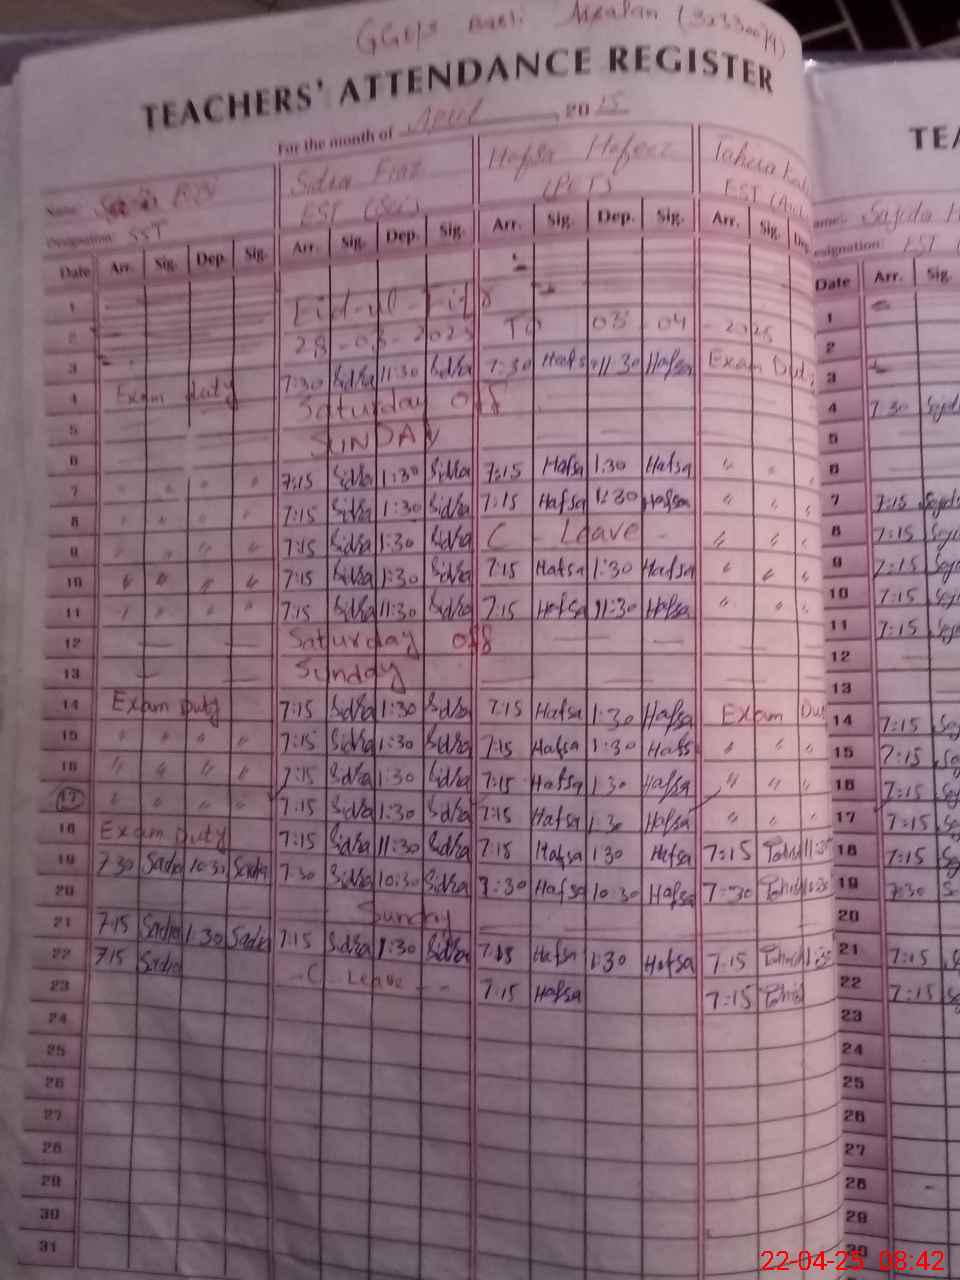 GGE/S Basti Arzalan (32330079)
TEACHERS' ATTENDANCE REGISTER
For the month of April, 2025
Name: Sidra Fiaz Hafsa Hafeez Tahira
Designation: SST EST (Sci) (PET) EST
Date Arr. Sig. Dep. Sig. Arr. Sig. Dep. Sig. Arr. Sig. Dep. Sig. Arr. Sig. Dep.
1 Eid-ul-Fitr
2 28-03-2025 To 03-04-2025
3
4 Exam Duty 7:30 Sidra 11:30 Sidra 7:30 Hafsa 11:30 Hafsa Exam Duty
5 Saturday off
6 SUNDAY
7 " " " " 7:15 Sidra 1:30 Sidra 7:15 Hafsa 1:30 Hafsa " "
8 " " " " 7:15 Sidra 1:30 Sidra 7:15 Hafsa 1:30 Hafsa " " "
9 " " " " 7:15 Sidra 1:30 Sidra C - Leave - " " "
10 " " " " 7:15 Sidra 1:30 Sidra 7:15 Hafsa 1:30 Hafsa " " "
11 " " " " 7:15 Sidra 11:30 Sidra 7:15 Hafsa 11:30 Hafsa " " "
12 Saturday off
13 Sunday
14 Exam Duty 7:15 Sidra 1:30 Sidra 7:15 Hafsa 1:30 Hafsa Exam Du
15 " " " " 7:15 Sidra 1:30 Sidra 7:15 Hafsa 1:30 Hafsa " " "
16 " " " " 7:15 Sidra 1:30 Sidra 7:15 Hafsa 1:30 Hafsa " " "
17 " " " " 7:15 Sidra 1:30 Sidra 7:15 Hafsa 1:30 Hafsa " " "
18 Exam Duty 7:15 Sidra 11:30 Sidra 7:15 Hafsa 1:30 Hafsa 7:15 11:30
19 7:30 Sadia 10:30 Sadia 7:30 Sidra 10:30 Sidra 7:30 Hafsa 10:30 Hafsa 7:30
20 Sunday
21 7:15 Sadia 1:30 Sadia 7:15 Sidra 1:30 Sidra 7:15 Hafsa 1:30 Hafsa 7:15
22 7:15 Sadia - C - Leave - - 7:15 Hafsa 7:15
23
24
25
26
27
28
29
30
31
TEA
ame: Sajida H
esignation: EST (
Date Arr. Sig.
1
2
3
4 7:30 Sajid
5
6
7 7:15 Sajid
8 7:15 Saji
9 7:15 Saj
10 7:15 Saj
11 7:15 Saj
12
13
14 7:15 Sa
15 7:15 Sa
16 7:15 Sa
17 7:15 Sa
18 7:15 Sa
19 7:30 S
20
21 7:15 S
22 7:15 S
23
24
25
26
27
28
29
30
22-04-25 08:42